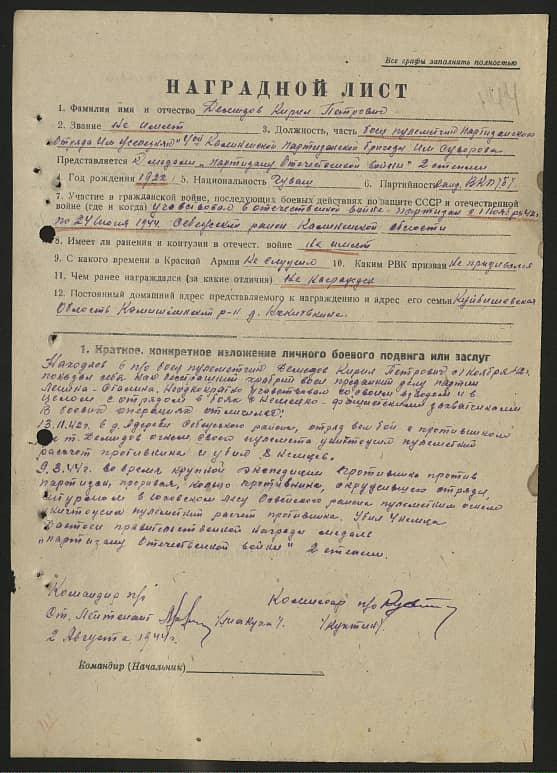 Все графы заполнять полностью
НАГРАДНОЙ ЛИСТ
1. Фамилия имя и отчество Демидов Кирил Петрович
2. Звание не имеет 3. Должность, часть боец пулеметчик Партизанского
отряда им 4ой Калининской партизанской бригады им Суворова
Представляется к медали „партизану Отечественной войны" 2 степени
4. Год рождения 1922 5. Национальность Чуваш 6. Партийность канд. ВКП/б/
7. Участие в гражданской войне, последующих боевых действиях по защите СССР и отечественной
войне (где и когда) участвовал в отечественной войне - партизан с 1 Ноября 42г.
по 24 Июля 1944. район Калининской области
8. Имеет ли ранения и контузии в отечест. войне не имеет
9. С какого времени в Красной Армии не служил 10. Каким РВК призван не призывался
11. Чем ранее награждался (за какие отличия) не награжден
12. Постоянный домашний адрес представляемого к награждению и адрес его семьи Куйбышевская
Область р-н д.
1. Краткое, конкретное изложение личного боевого подвига или заслуг
Находясь в п/о боец пулеметчик Демидов Кирил Петрович с 1 Ноября 42г.
показал себя как бесстрашный храбрый воин преданный делу партии
Ленина-Сталина. Неоднократно участвовал со своим взводом и в
целом с отрядом в боях с Немецко-фашистскими захватчиками
В боевых операциях отличился:
13.11.42г. в д. района, отряд вел бой с противником
т. Демидов огнем своего пулемета уничтожил пулеметный
расчет противника и убил 8 немцев.
9.3.44г. во время крупной экспедиции противника против
партизан, прорывая кольцо противника, окружившего отряд,
штурмом в лесу района пулеметным огнем
уничтожил пулеметный расчет противника. Убил 4 немца
Достоин правительственной награды медаль
„партизану Отечественной войны" 2 степени.
Командир п/о Комиссар п/о
Ст. Лейтенант
2 Августа 1944г.
Командир (Начальник)